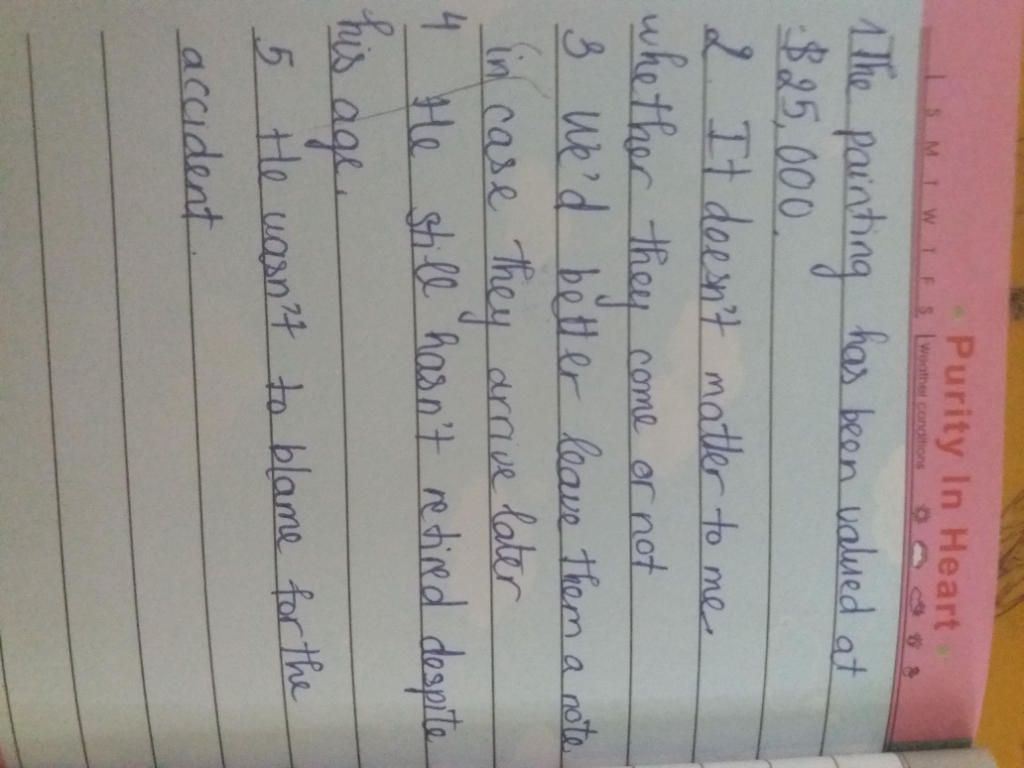 Purity In Heart
S M T W T F S Weather conditions
1 The painting has been valued at
$25,000.
2. It doesn't matter to me.
whether they come or not
3 We'd better leave them a note
in case they arrive later
4 He still hasn't retired despite
his age.
5 He wasn't to blame for the
accident.